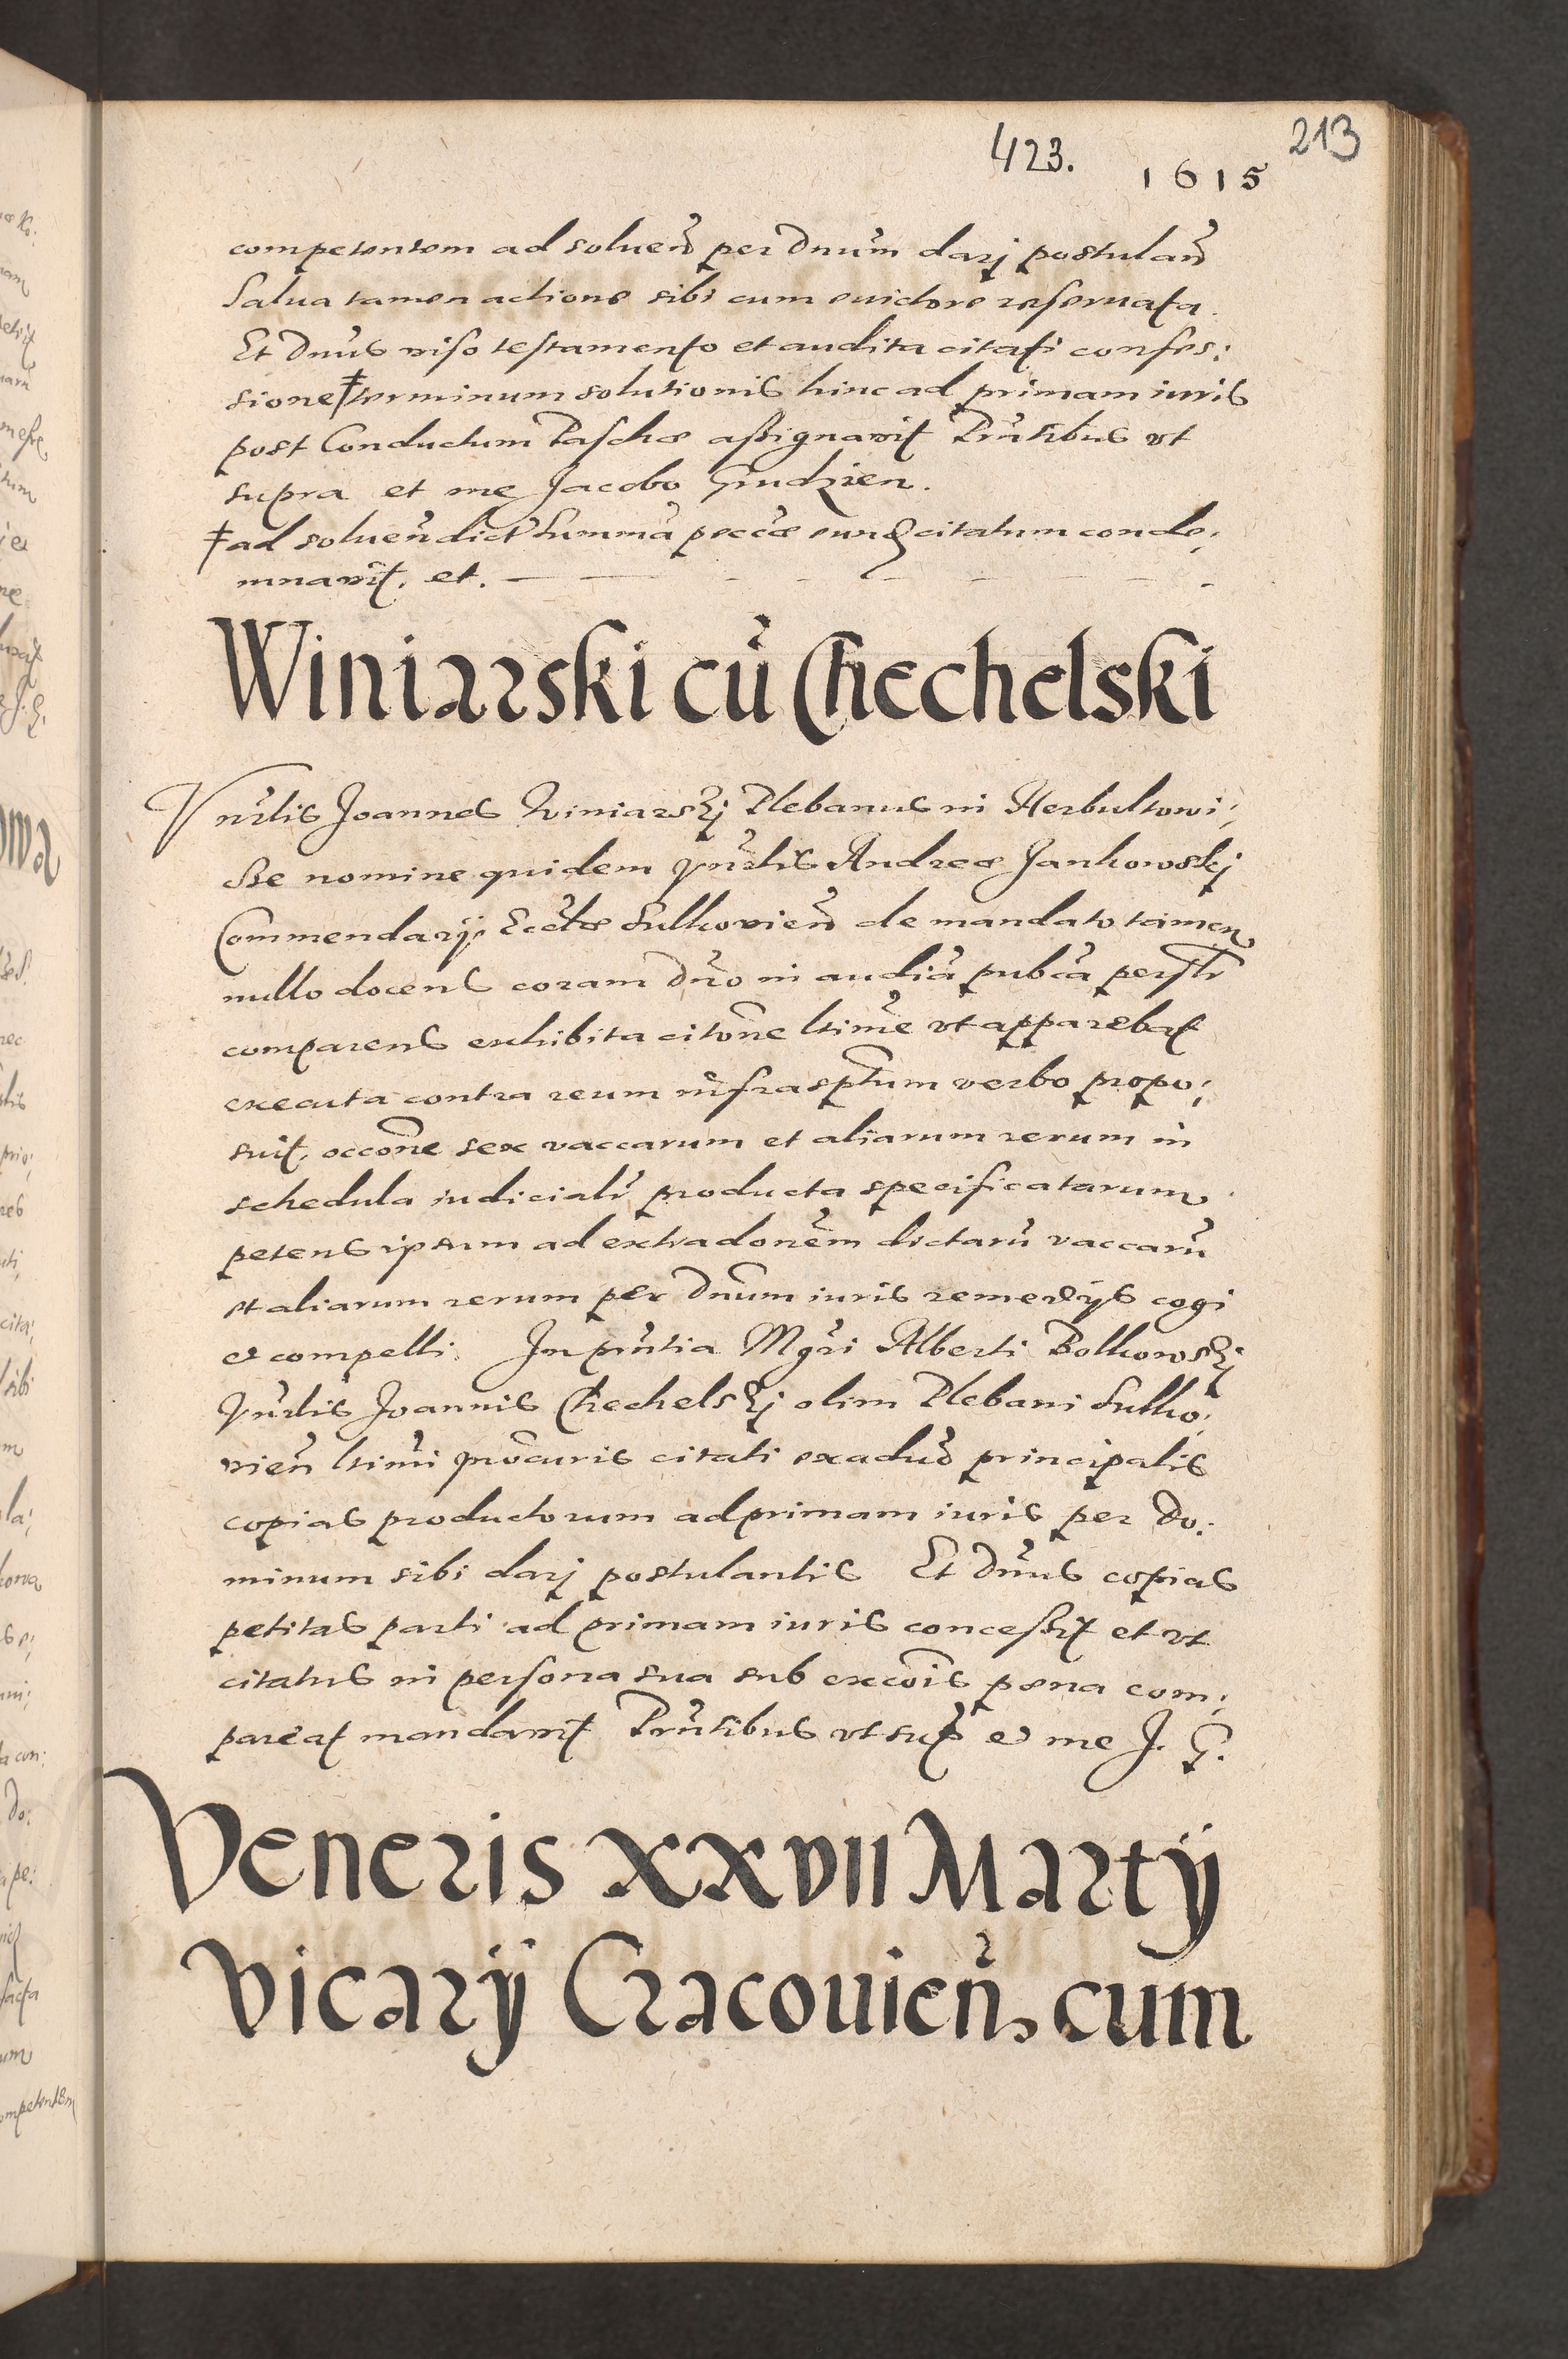 423.
213
1615
competentem ad soluen̄ per Dnūm darj postulan̄
Salua tamen actione sibi cum euictore reseruata.
Et Dnūs viso testamento et audita citati confes:
sione ‡ terminum solutionis hinc ad primam iuris
post Conductum Paschæ assignavit Prn̄tibus vt
supra et me Jacobo Grudzien.
‡ ad soluen̄ dict̄ summā pecc̄æ eund citatum conde:
mnavit. et. — — - - - - -
Winiarski cū Chechelski
Vnrl̄is Joannes Winiarskj Plebanus in Herbultowi:
sce nomine quidem Vnrl̄is Andreæ Jankowskj
Commendarij Eccl̄æ Sulkovien̄ de mandato tamen
nullo docens coram Dn̄o in audiā pubcā persl̄r
comparens exhibita citōne ltime vt apparebat
executa contra reum infrasptūm verbo propo:
suit, occōne sex vaccarum et aliarum rerum in
schedula iudicialr̄ producta specificatarum
petens ipsum ad extradonēm dictarū vaccarū
et aliarum rerum per Dnūm iuris remedijs cogi
et compelli. In prn̄tia Mgr̄i Alberti Bolkowskj
Vnrl̄is Joannis Chechelskj olim Plebani Sulko:
vien̄ ltimī procūris citati ex aduō principalis
copias productorum ad primam iuris per Do:
minum sibi darj postulantis Et Dnūs copias
petitas parti ad primam iuris concessit et vt
citatus in persona sua sub excōis pœna com:
pareat mandavit Prn̄tibus vt sup̄ et me J. G.
Veneris XXVII Martÿ
Vicarÿ Cracouien̄, cum